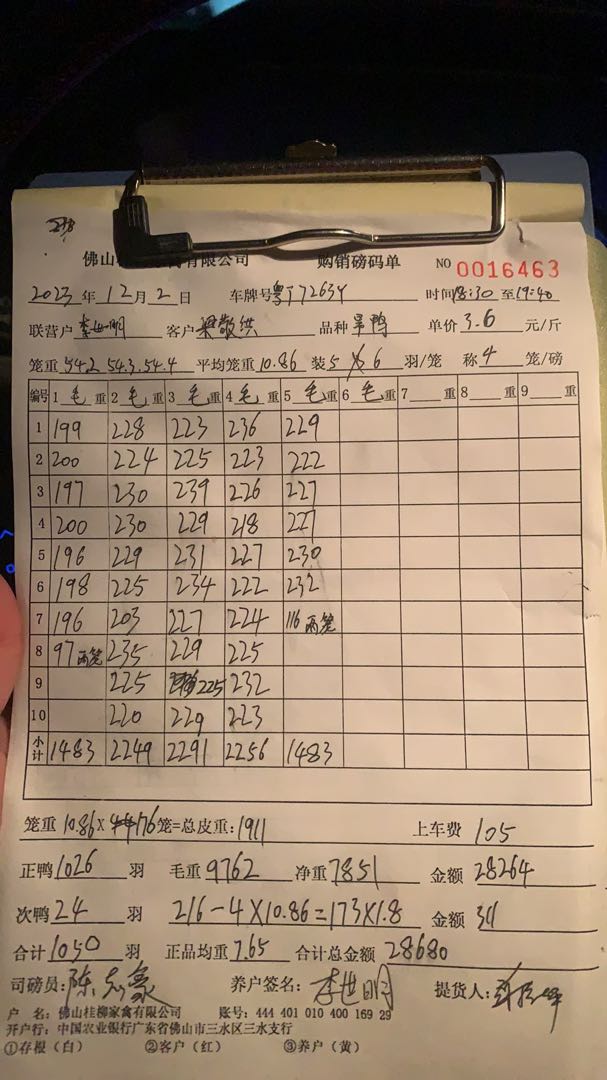 佛山 有限公司 购销磅码单 NO 0016463
2023 年 12 月 2 日 车牌号 粤T72634 时间 18:30 至 19:40
联营户 李世明 客户 梁敬洪 品种 旱鸭 单价 3.6 元/斤
笼重 54.2 54.3.54.4 平均笼重 10.86 装 5 6 羽/笼 称 4 笼/磅
编号 1 毛 重 2 毛 重 3 毛 重 4 毛 重 5 毛 重 6 毛 重 7 重 8 重 9 重
1 199 228 223 236 229
2 200 224 225 223 222
3 197 230 239 226 227
4 200 230 229 218 227
5 196 229 231 227 230
6 198 225 234 222 232
7 196 203 227 224 116 两笼
8 97 两笼 235 229 225
9 225 225 232
10 220 229 223
小计 1483 2249 2291 2256 1483
笼重 10.86 X 176 笼=总皮重: 1911 上车费 105
正鸭 1026 羽 毛重 9762 净重 7851 金额 28264
次鸭 24 羽 216-4X10.86=173X1.8 金额 311
合计 1050 羽 正品均重 7.65 合计总金额 28680
司磅员: 陈志豪 养户签名: 李世明 提货人:
户 名: 佛山桂柳家禽有限公司 账号: 444 401 010 400 169 29
开户行: 中国农业银行广东省佛山市三水区三水支行
①存根（白） ②客户（红） ③养户（黄）